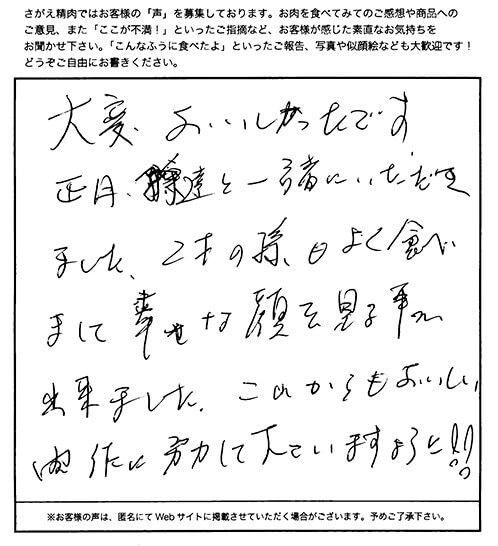 さがえ精肉ではお客様の「声」を募集しております。お肉を食べてみてのご感想や商品への
ご意見、また「ここが不満！」といったご指摘など、お客様が感じた素直なお気持ちを
お聞かせ下さい。「こんなふうに食べたよ」といったご報告、写真や似顔絵なども大歓迎です！
どうぞご自由にお書きください。
大変、おいしかったです
正月、孫達と一緒にいただき
ました、2才の孫、もよく食べ
まして幸せな顔を見る事が
出来ました。これからもおいしい
肉作に努力して下さいますように!!
※お客様の声は、匿名にてWebサイトに掲載させていただく場合がございます。予めご了承下さい。